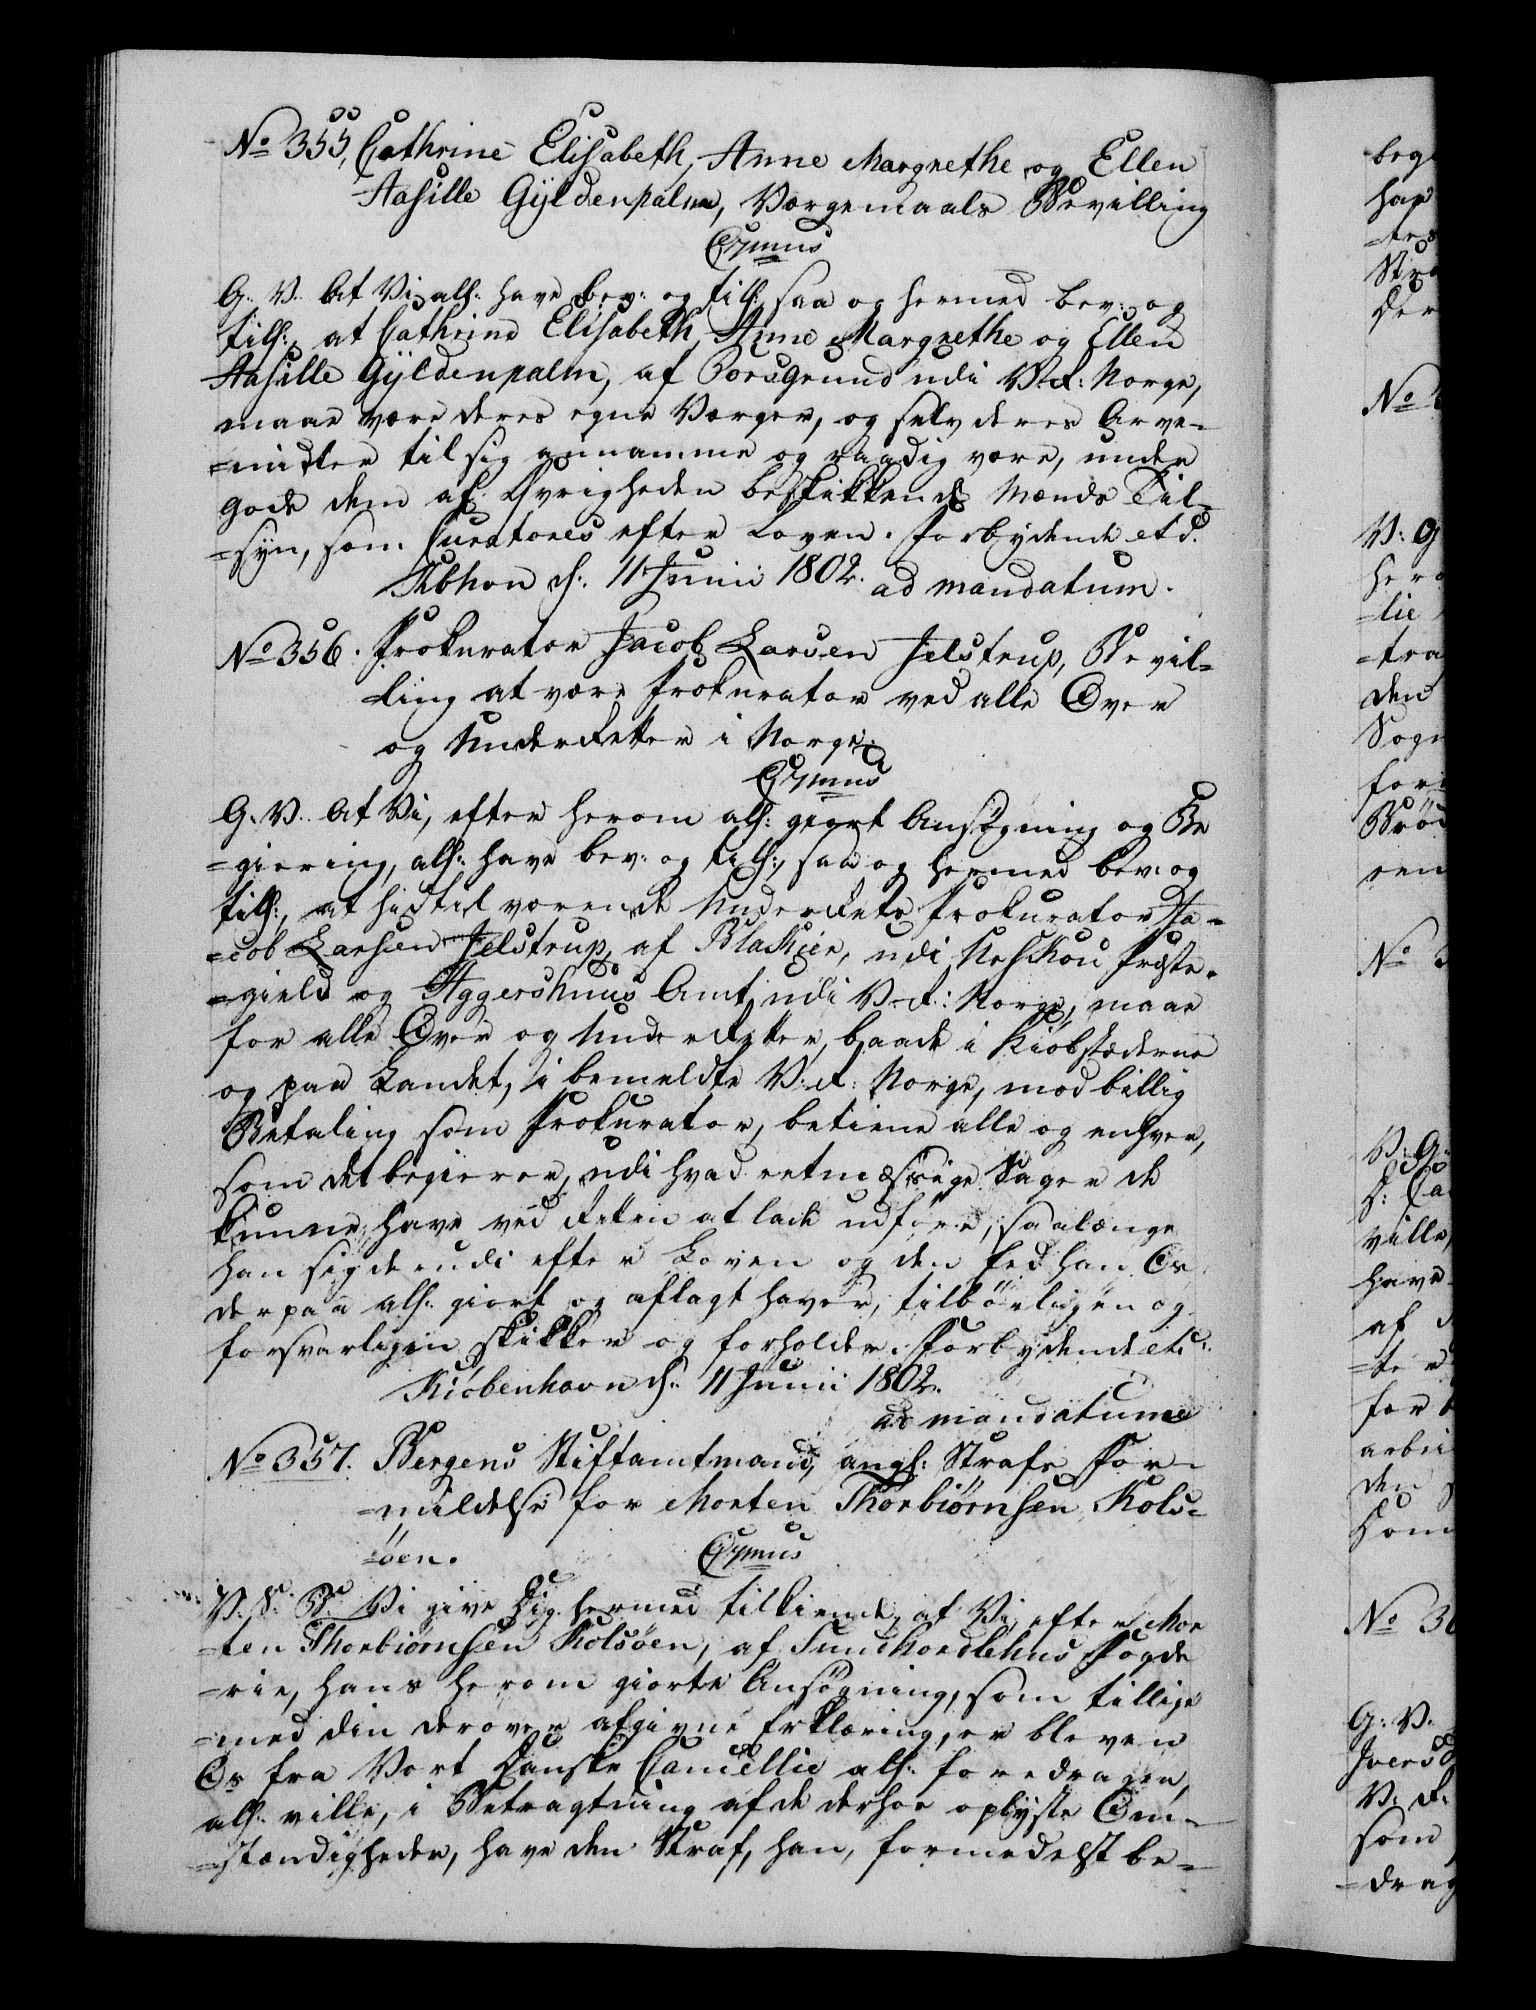 No 355, Cathrine Elisabeth, Anne Margrethe og Ellen
Aasille Gyldenpalm, Værgemaals Bevilling
G. V. At Vi alh: have bev: og till: saa og hermed bev: og
till:, at Cathrine Elisabeth, Anne Margrethe og Ellen
Aasille Gyldenpalm, af Porsgrund udi V: R: Norge,
maae være deres egne Værger, og selv deres Arve-
=midler til sig annamme og raadig være, under
gode dem af Øvrigheden beskikkende Mænds Til-
=syn, som Curatores efter Loven. Forbydende etc.
Kbhvn d: 11 Junii 1802. ad mandatum.
No 356. Prokurator Jacob Larsen Jelstrup, Bevil-
=ling at være Prokurator ved alle Over
og Underretter i Norge.
G. V. At Vi, efter herom alh: giort Ansøgning og Be
=giering, alh: have bev: og till:, saa og hermed bev: og
till:, at hidtil værende Underrets Prokurator Ja-
=cob Larsen Jelstrup, af Blakier, udi Præste-
=gield og Aggershuus Amt, udi V. R: Norge, maae
for alle Over og Underretter, baade i Kiøbstæderne
og paa Landet, i bemeldte V: R: Norge, mod billig
Betaling som Prokurator, betiene alle og enhver,
som det begierer, udi hvad retmæssige Sager de
kunne have ved Retten at lade udføre, saalænge
han sig derudi efter Loven og den Eed han Os
derpaa alh: giort og aflagt haver, tilbørligen og
forsvarligen skikker og forholder. Forbydende etc.
Kiøbenhavn d: 11 Junii 1802.
ad mandatum
No 357. Bergens Stiftamtmand, angl: Strafs For-
=mildelse for Morten Thorbiørnsen Kols-
=øen.
Vi give Dig hermed tilkiende, at Vi, efter Mor
=ten Thorbiørnsen Kolsøen, af Sundhordlehns Fogde
=rie, hans herom giorte Ansøgning, som tillige
=med din derover afgivne Erklæring, er bleven
Os fra Vort Danske Cancellie alh: foredragen,
alh: ville, i Betragtning af de derhos oplyste Om-
=stændigheder, have den Straf, han, formedelst be-